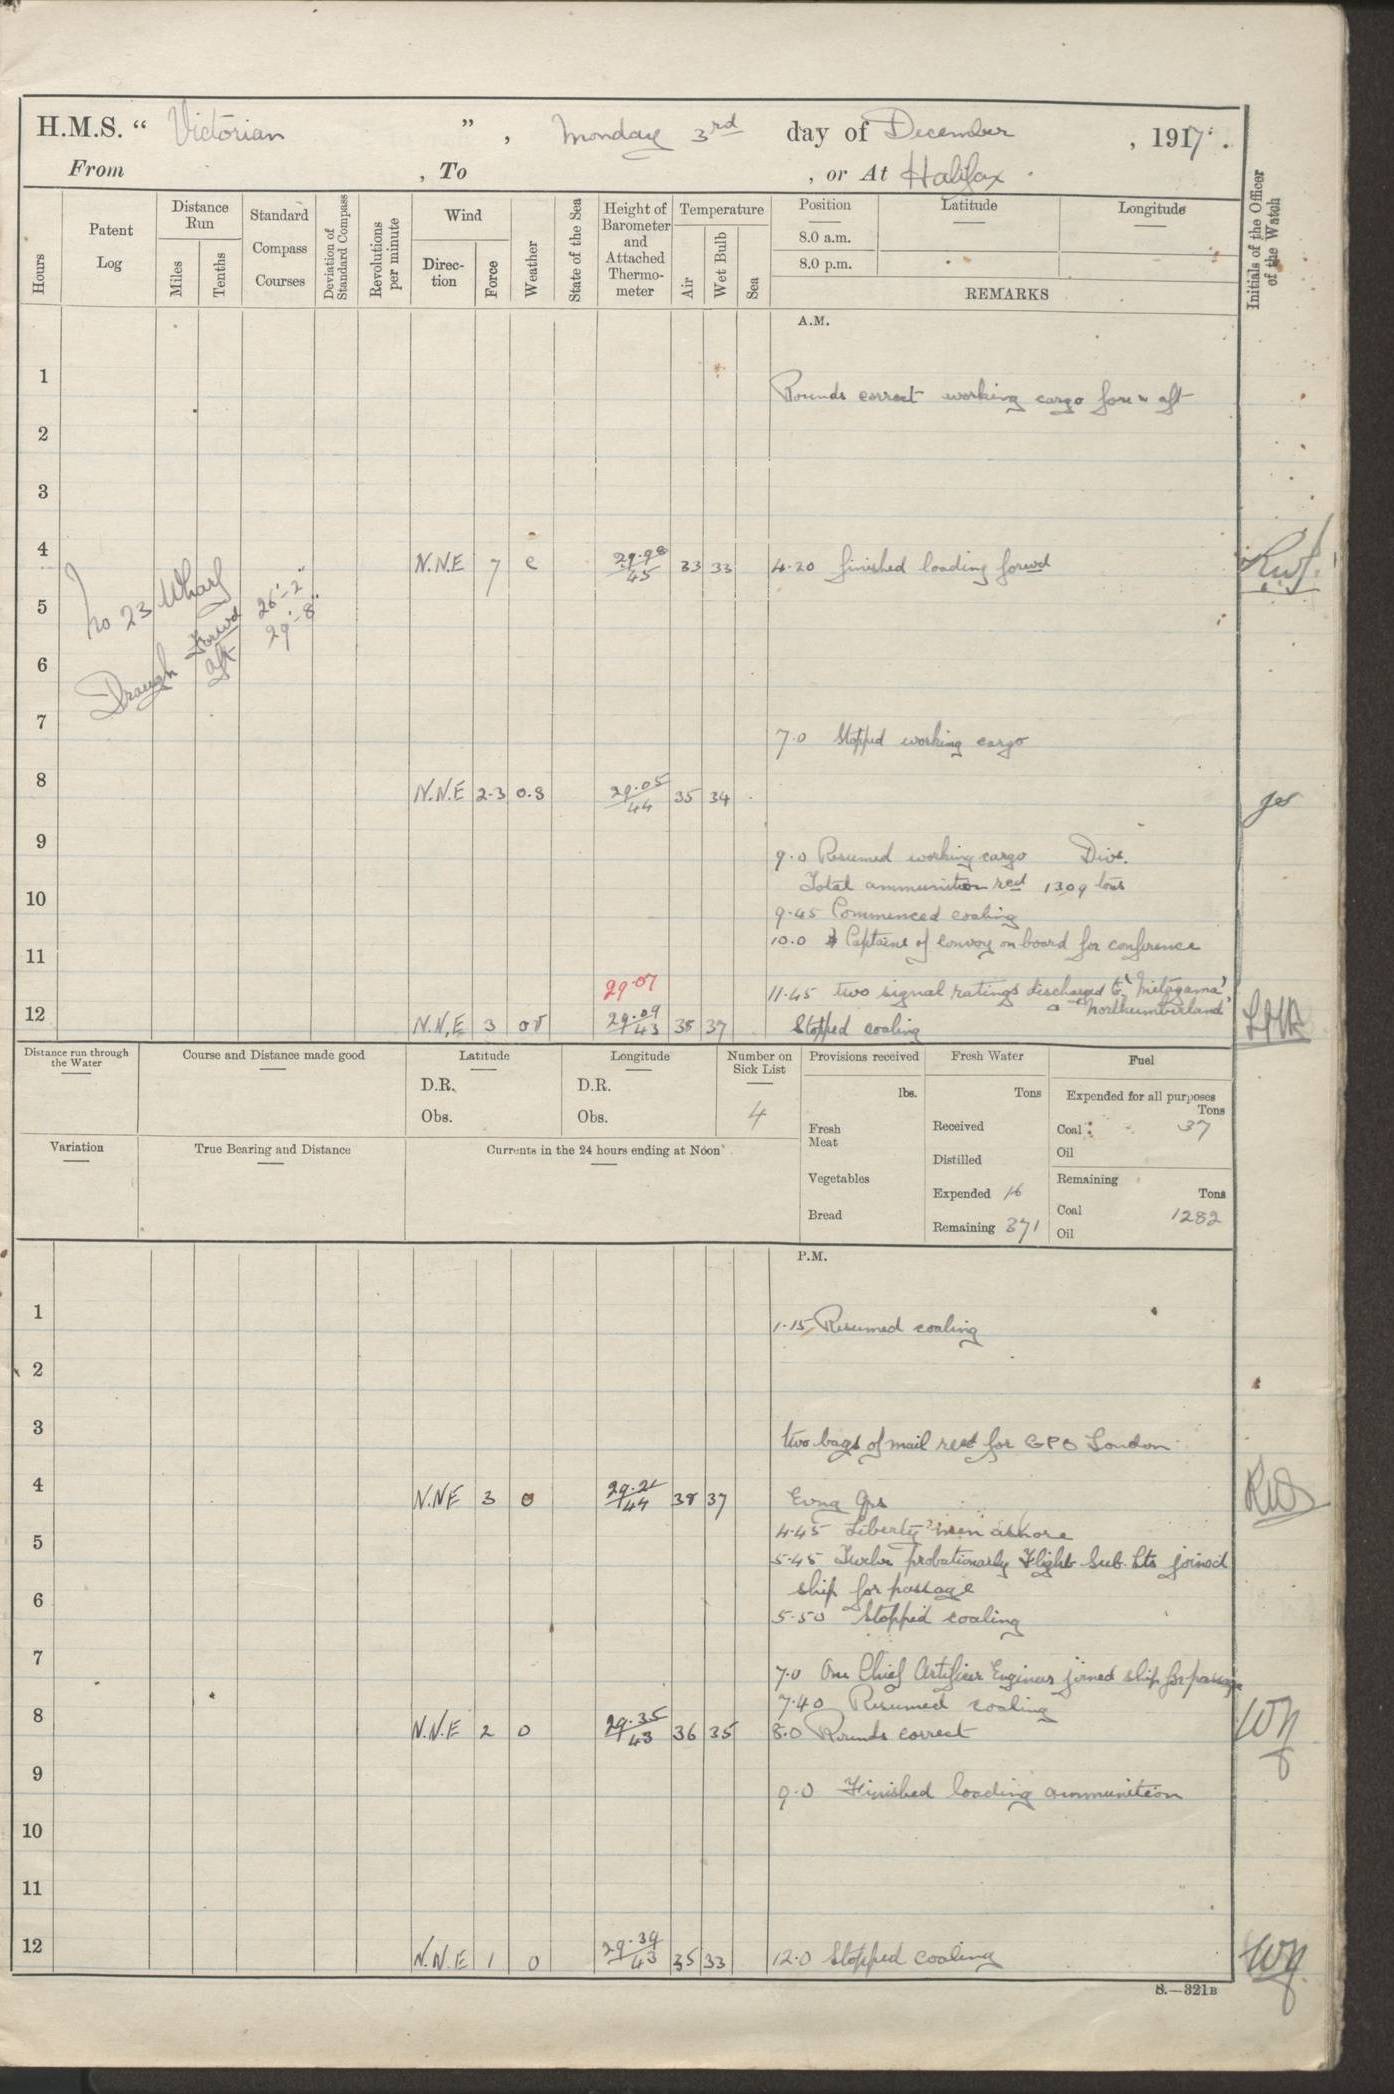 H.M.S. "Victorian", Monday 3rd day of December, 1917.
From , To , or At Halifax
Hours
Patent Log
Distance Run
Miles
Tenths
Standard Compass Courses
Deviation of Standard Compass
Revolutions per minute
Wind
Direction
Force
Weather
State of the Sea
Height of Barometer and Attached Thermometer
Temperature
Air
Wet Bulb
Sea
Position
Latitude
Longitude
8.0 a.m.
8.0 p.m.
REMARKS
Initials of the Officer of the Watch
A.M.
1
Rounds correct working cargo fore & aft
2
3
4 N.N.E 7 c 33 33 4.20 finished loading forwd
No 23 Wharf
5
Forwd 26'-2"
aft 29'-8"
6
7
7.0 Stopped working cargo
8 N.N.E 2.3 29.05/44 35 34
9
9.0 Resumed working cargo Divs.
Total ammunition recd 1309 tons
10
9.45 Commenced coaling
10.0 Captains of convoy on board for conference
11
29.07
11.45 two signal ratings discharged to 'Metagama'
"Northumberland"
12 N.N.E 3 29.09/43 38 37 Stopped coaling
Distance run through the Water
Course and Distance made good
Latitude
D.R.
Obs.
Longitude
D.R.
Obs.
Number on Sick List
4
Provisions received
lbs.
Fresh Meat
Vegetables
Bread
Fresh Water
Tons
Received
Distilled
Expended 16
Remaining 371
Fuel
Expended for all purposes
Tons
Coal 37
Oil
Remaining
Tons
Coal 1282
Oil
Variation
True Bearing and Distance
Currents in the 24 hours ending at Noon
P.M.
1
1.15 Resumed coaling
2
3
two bags of mail recd for GPO London
4 N.N.E 3 o 38 37 Evng Qrs
4.45 Liberty men ashore
5
5.45 Twelve probationary Flight Sub. Lts joined
ship for passage
6
5.50 Stopped coaling
7
7.0 One Chief Artificer Engineer joined ship for passage
7.40 Resumed coaling
8 N.N.E 2 o 29.35/43 36 35 8.0 Rounds correct
9
9.0 Finished loading ammunition
10
11
12 N.N.E 1 o 29.39/43 35 33 12.0 Stopped coaling
S.—321B